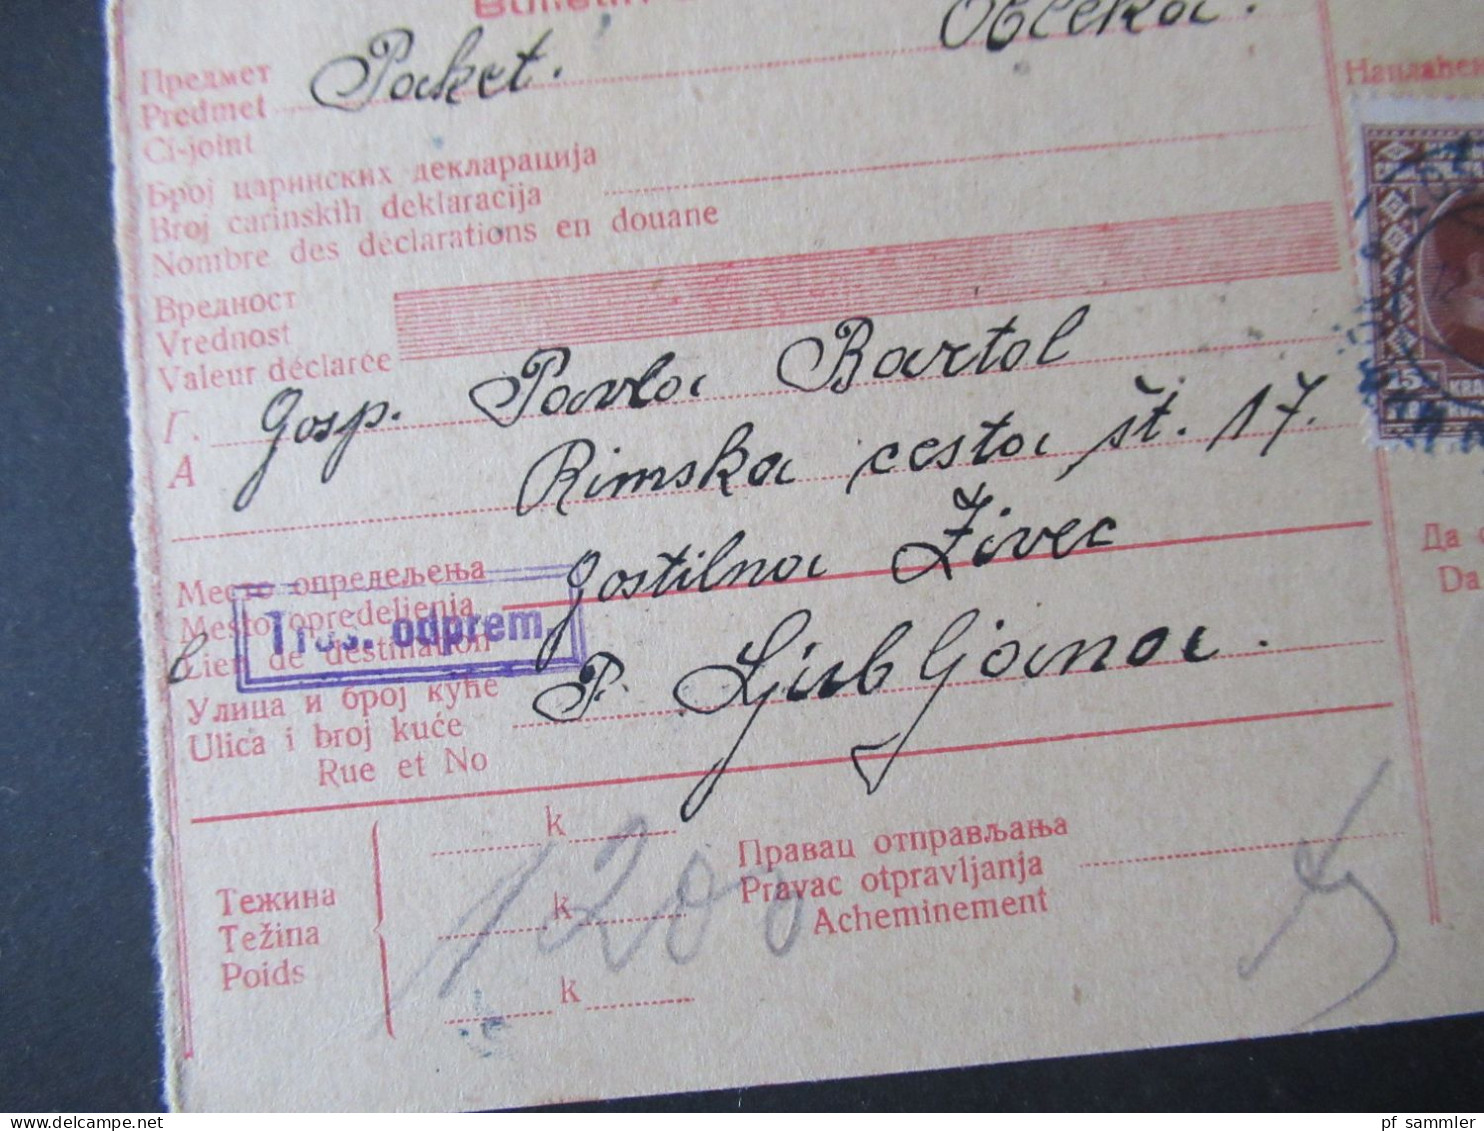 Предмет
Predmet Paket. Obleka.
Ci-joint
Наплаћен
Број царинских декларација
Broj carinskih deklaracija
Nombre des déclarations en douane
Вредност
Vrednost
Valeur déclarée
Г. Gosp. Pavla Bartol
A
Rimska cesta št. 17.
Gostilna Živec
Место опредељења
Mesto opredeljenja
Tros. odprem.
Lieu de destination
P. Ljubljana.
Улица и број куће
Ulica i broj kuće
Rue et No
Да
Da
15
k
Тежина k
Težina
Poids k
1200
Правац отправљања
Pravac otpravljanja
Acheminement
pf sammler